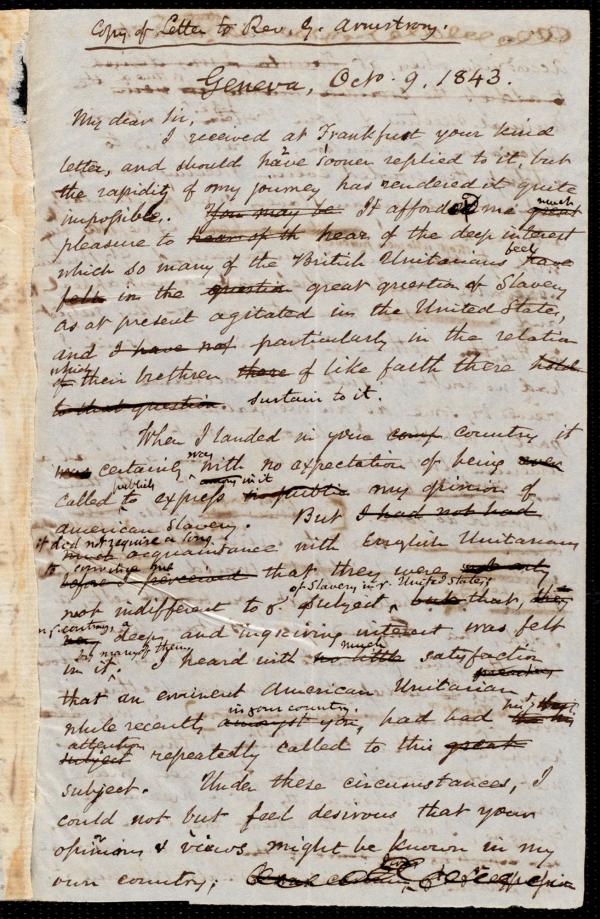 Copy of Letter to Rev. G. Armstrong.
Geneva, Oct. 9, 1843.
My dear Sir,
I received at Frankfurt your kind
letter, and should have sooner replied to it, but
the rapidity of my journey has rendered it quite
impossible. You may be It afforded me great much
pleasure to hear of th hear of the deep interest
which so many of the British Unitarians have feel
felt in the question great question of Slavery
as at present agitated in the United States,
and I have not particularly in the relation
which their brethren there of like faith there hold
to that question sustain to it.
When I landed in your country it
was certainly was with no expectation of being ever
called publicly to express in public my opinion of
American Slavery. But I had not had
it did not require a long
much acquaintance with English Unitarians
to convince me
before I perceived that they were not only
of Slavery in ye. United States,
not indifferent to ye. subject, but that, they
on ye. contrary, a
deep, and increasing interest was felt
by many of them
in it. I heard with no little much satisfaction
that an eminent American Unitarian preacher
while recently amongst you, in your country, had had
attention
subject repeatedly called to this great
subject. Under these circumstances, I
could not but feel desirous that your
opinions & views might be known in my
own country;